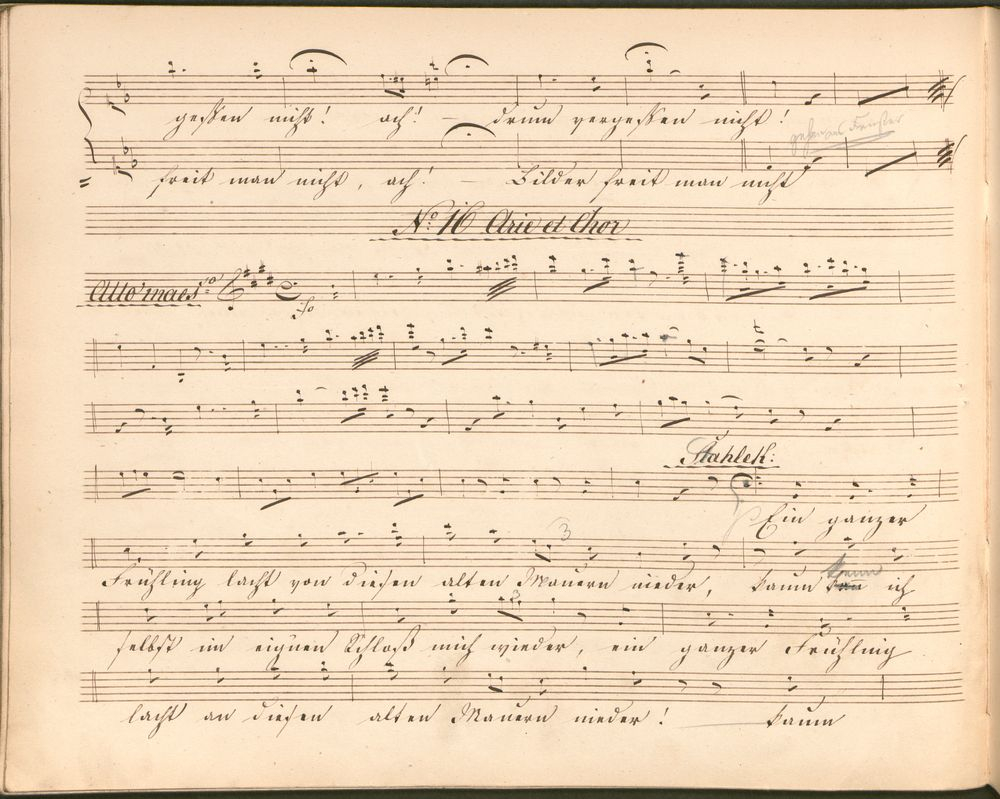 geßen nicht! ach! – drum vergeßen nicht!
freit man nicht, ach! – Bilder freit man nicht
No. 16 Arie et Chor
Allo maeso
fo
Stahlek:
Ein ganzer
3
Frühling lacht von diesen alten Mauern nieder, kaum kenn ich
3
selbst im eignen Schloß mich wieder, ein ganzer Frühling
lacht an diesen alten Mauern nieder! kaum